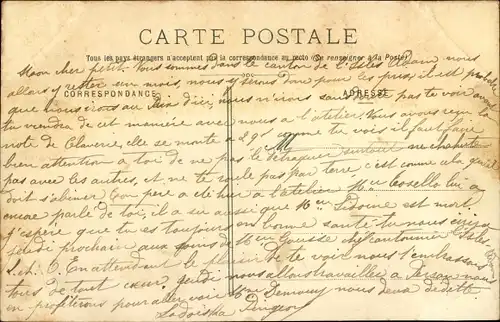 CARTE POSTALE
Tous les pays étrangers n'acceptent pas la correspondance au recto (Se renseigner à la Poste)
CORRESPONDANCE
ADRESSE
Mon cher petit. Nous sommes dans le canton de l'Isles Adam nous
allons y rester un mois, nous y serons donc pour les prix, il est probable
que nous irons au d'ici nous n'irons sans pas te voir avant
tu viendra de cette manière avec nous à l'atelier. Nous avons reçu la
note de Claverie, elle se monte à 89 comme tu vois il faut faire
bien attention à toi de ne pas le détraquer surtout ne
pas avec les autres, et ne te roule pas par terre, c'est comme cela qu'il
doit s'abimer Ton père a été hier à l'atelier Mr Cosello lui a
encore parlé de toi, il a su aussi que Mr Sidoine est mort.
J'espère que tu es toujours en bonne santé tu nous écrira
jeudi prochain aux soins de Mr Gousse chef cantonnier Isles
Adam S. et O. En attendant le plaisir de te voir nous t'embrassons
tous de tout cœur, jeudi nous allons travailler à Persan nous
en profiterons pour aller voir Mme Demouy nous deva dedette
Lodoiska Pingeon